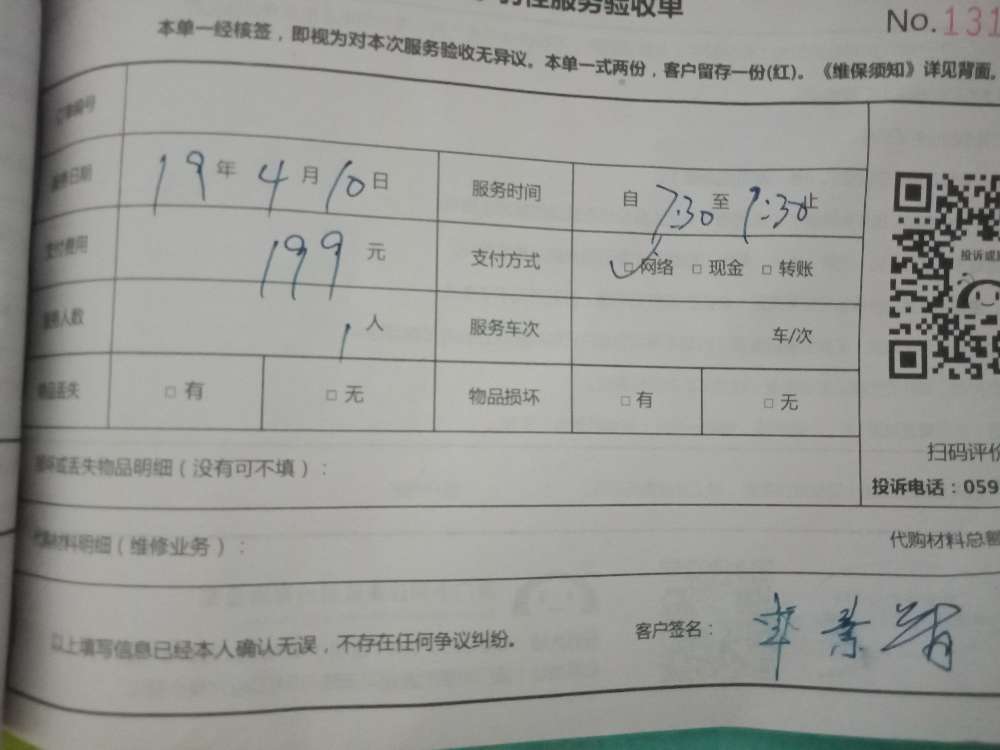 性服务验收单
No.131
本单一经核签，即视为对本次服务验收无异议。本单一式两份，客户留存一份(红)。《维保须知》详见背面。
订单编号
服务日期 19年4月10日 服务时间 自7:30至9:30止
支付费用 199元 支付方式 □网络 □现金 □转账
服务人数 1人 服务车次 车/次
物品丢失 □有 □无 物品损坏 □有 □无
投诉或
扫码评价
投诉电话：059
损坏或丢失物品明细（没有可不填）：
代购材料明细（维修业务）： 代购材料总额
以上填写信息已经本人确认无误，不存在任何争议纠纷。 客户签名：